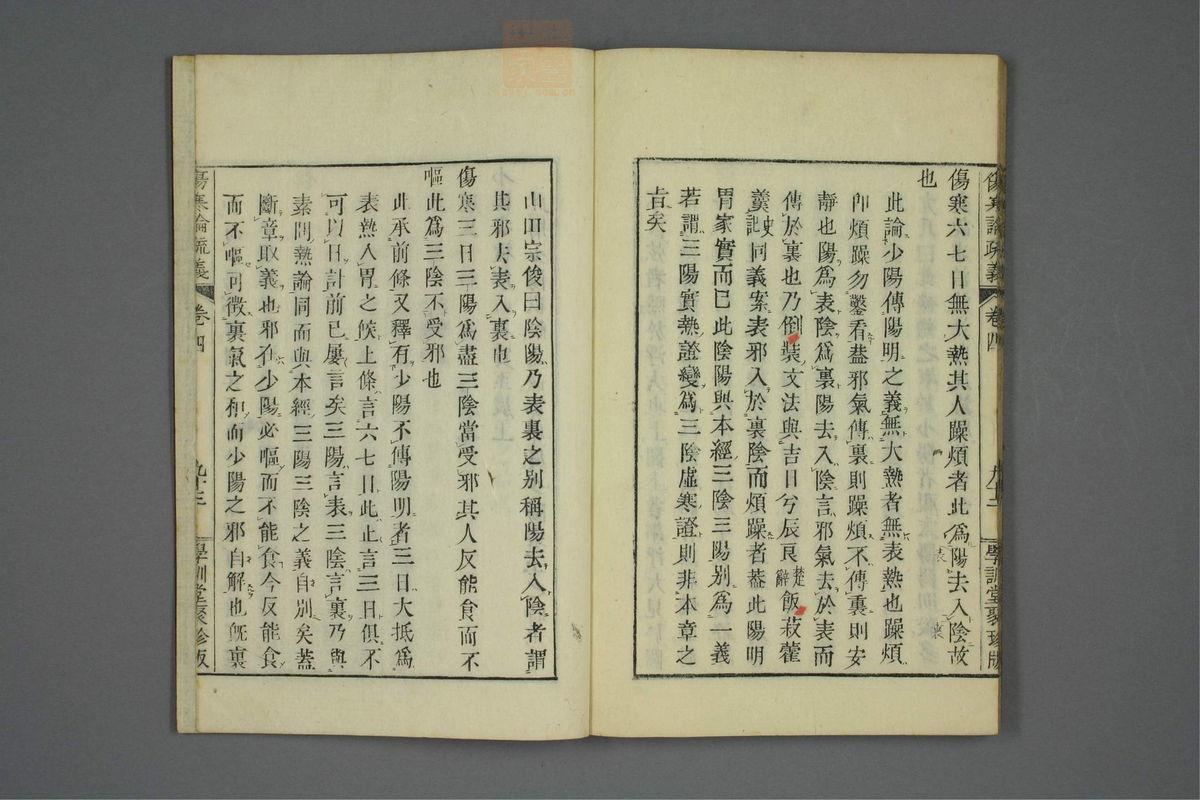 傷寒論疏義 卷四 九十二 學訓堂聚珍版
傷寒六七日無大熱其人躁煩者此爲陽去入陰故
也
此論少陽傳陽明之義無大熱者無表熱也躁煩
卽煩躁勿鑿看葢邪氣傳裏則躁煩不傳裏則安
靜也陽爲表陰爲裏陽去入陰言邪氣去於表而
傳於裏也乃倒裝文法與吉日兮辰良楚辭飯菽藿
羹史記同義案表邪入於裏陰而煩躁者葢此陽明
胃家實而已此陰陽與本經三陰三陽別爲一義
若謂三陽實熱證變爲三陰虛寒證則非本章之
旨矣
山田宗俊曰陰陽乃表裏之別稱陽去入陰者謂
其邪去表入裏也
傷寒三日三陽爲盡三陰當受邪其人反能食而不
嘔此爲三陰不受邪也
此承前條又釋有少陽不傳陽明者三日大抵爲
表熱入胃之候上條言六七日此止言三日俱不
可以日計前已屢言矣三陽言表三陰言裏乃與
素問熱論同而與本經三陽三陰之義自別矣葢
斷章取義也邪在少陽必嘔而不能食今反能食
而不嘔可徵裏氣之和而少陽之邪自解也旣裏
傷寒論疏義 卷四 九十三 學訓堂聚珍版